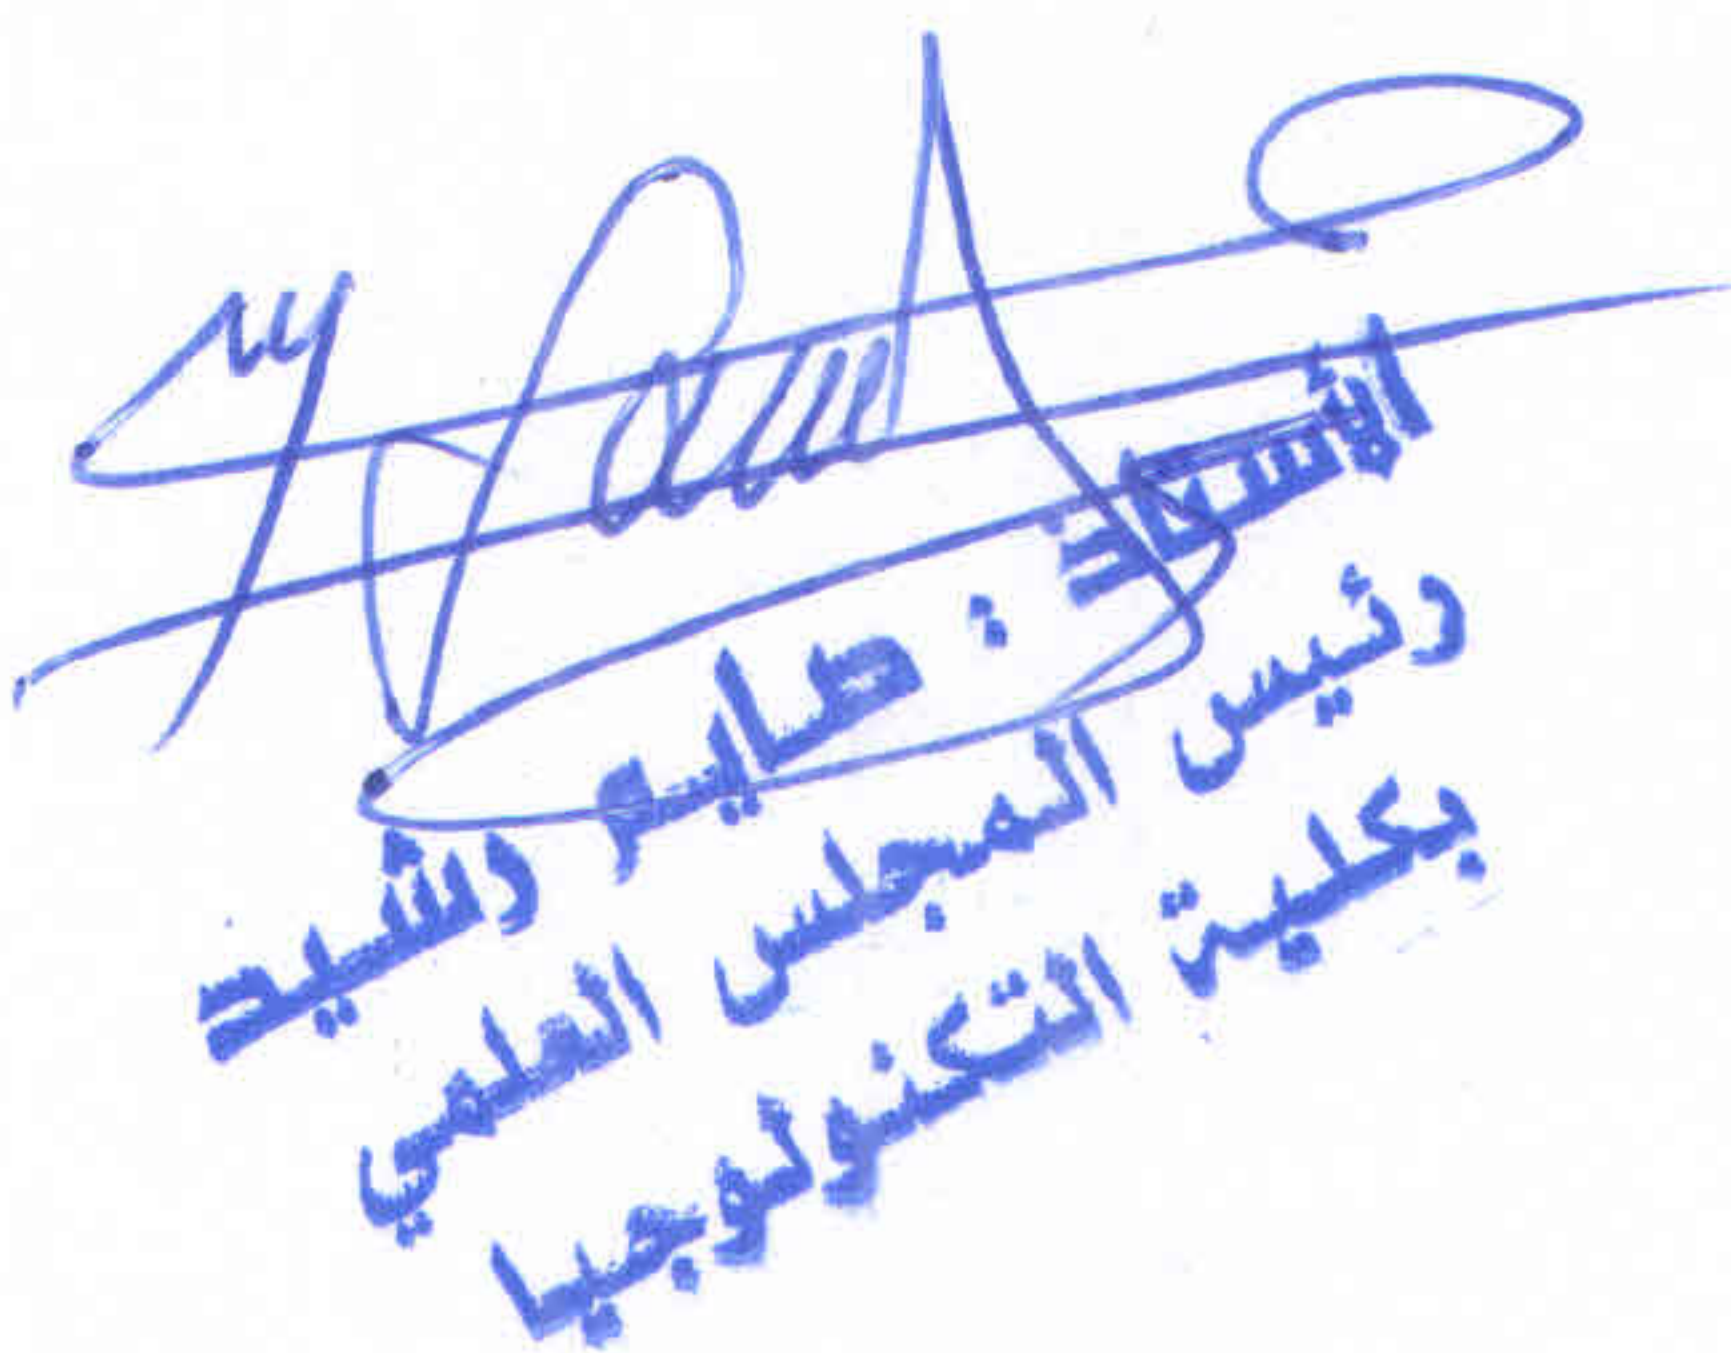 الأستاذ : صايم رشيد
رئيس المجلس العلمي
بكلية التكنولوجيا